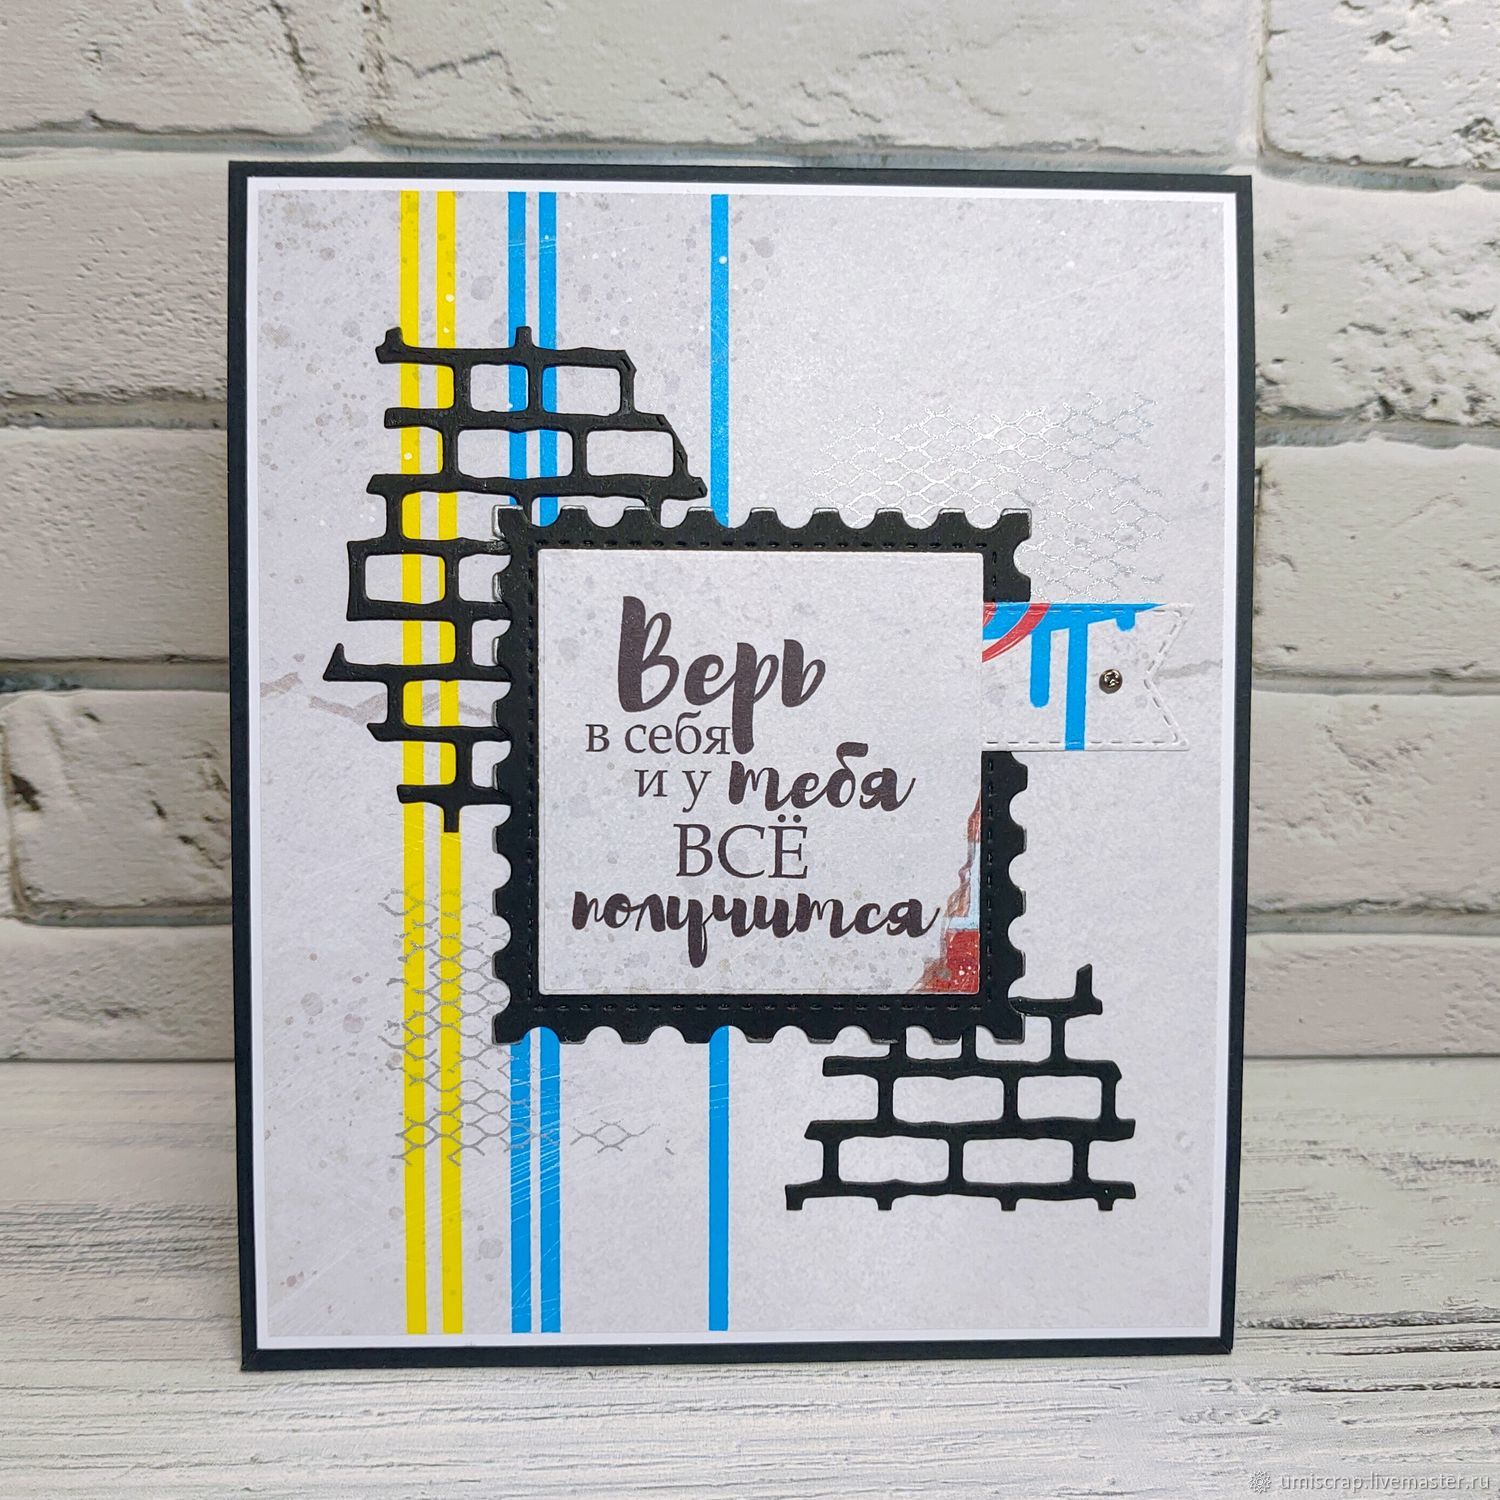 Верь
в себя
и у тебя
ВСЁ
получится
umiscrap.livemaster.ru